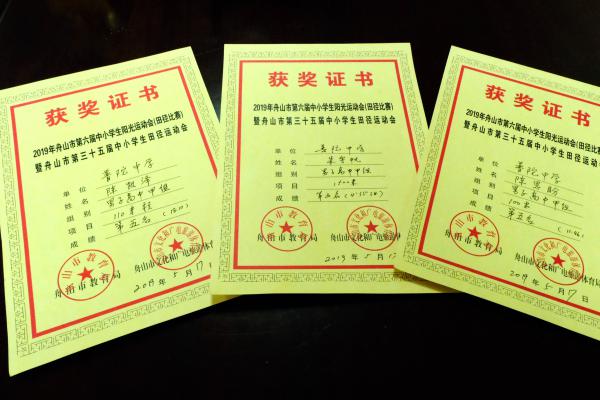 获奖证书
2019年舟山市第六届中小学生阳光运动会(田径比赛)
暨舟山市第三十五届中小学生田径运动会
单位 普陀中学
姓名 陈
组别 男子高中甲组
项目 110米栏
成绩 第五名
舟山市教育局
舟山市文化和广电旅游体育局
2019年5月17日
获奖证书
2019年舟山市第六届中小学生阳光运动会(田径比赛)
暨舟山市第三十五届中小学生田径运动会
单位 普陀中学
姓名
组别 男子高中甲组
项目 1500米
成绩 第五名
舟山市教育局
舟山市文化和广电旅游体育
2019年5月17
获奖证书
2019年舟山市第六届中小学生阳光运动会(田径比赛)
暨舟山市第三十五届中小学生田径运动会
单位 普陀中学
姓名 陈
组别 男子高中甲组
项目 100米
成绩 第五名
舟山市教育局
舟山市文化和广电旅游体育局
2019年5月17日